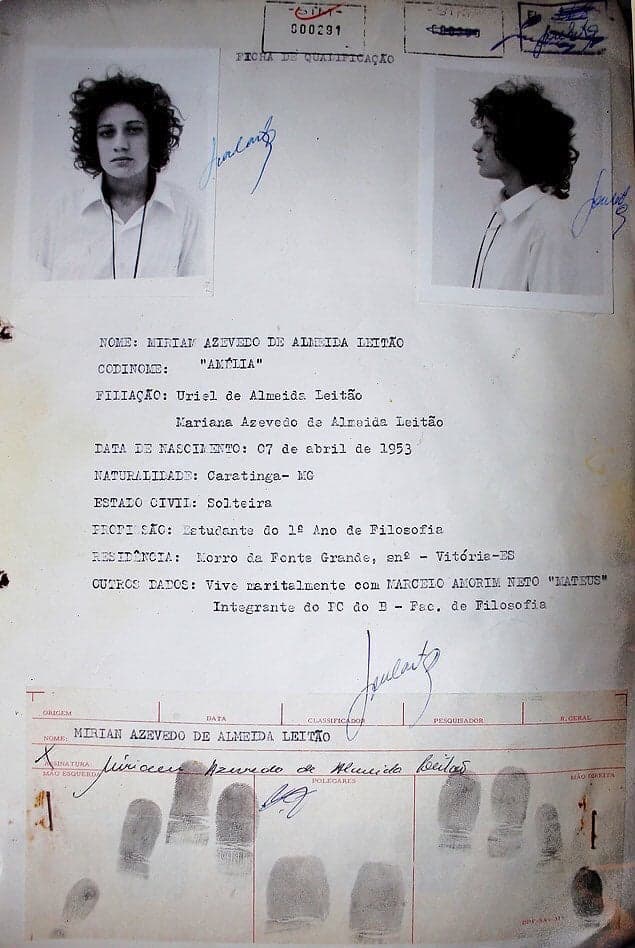 000291
FICHA DE QUALIFICAÇÃO
NOME: MIRIAM AZEVEDO DE ALMEIDA LEITÃO
CODINOME: "AMÉLIA"
FILIAÇÃO: Uriel de Almeida Leitão
Mariana Azevedo de Almeida Leitão
DATA DE NASCIMENTO: 07 de abril de 1953
NATURALIDADE: Caratinga- MG
ESTADO CIVIL: Solteira
PROFISSÃO: Estudante do 1º Ano de Filosofia
RESIDÊNCIA: Morro da Fonte Grande, snº - Vitória-ES
OUTROS DADOS: Vive maritalmente com MARCELO AMORIM NETO "MATEUS"
Integrante do PC do B - Fac. de Filosofia
ORIGEM DATA CLASSIFICADOR PESQUISADOR R. GERAL
NOME: MIRIAN AZEVEDO DE ALMEIDA LEITÃO
X ASSINATURA: Miriam Azevedo de Almeida Leitão
MÃO ESQUERDA POLEGARES MÃO DIREITA